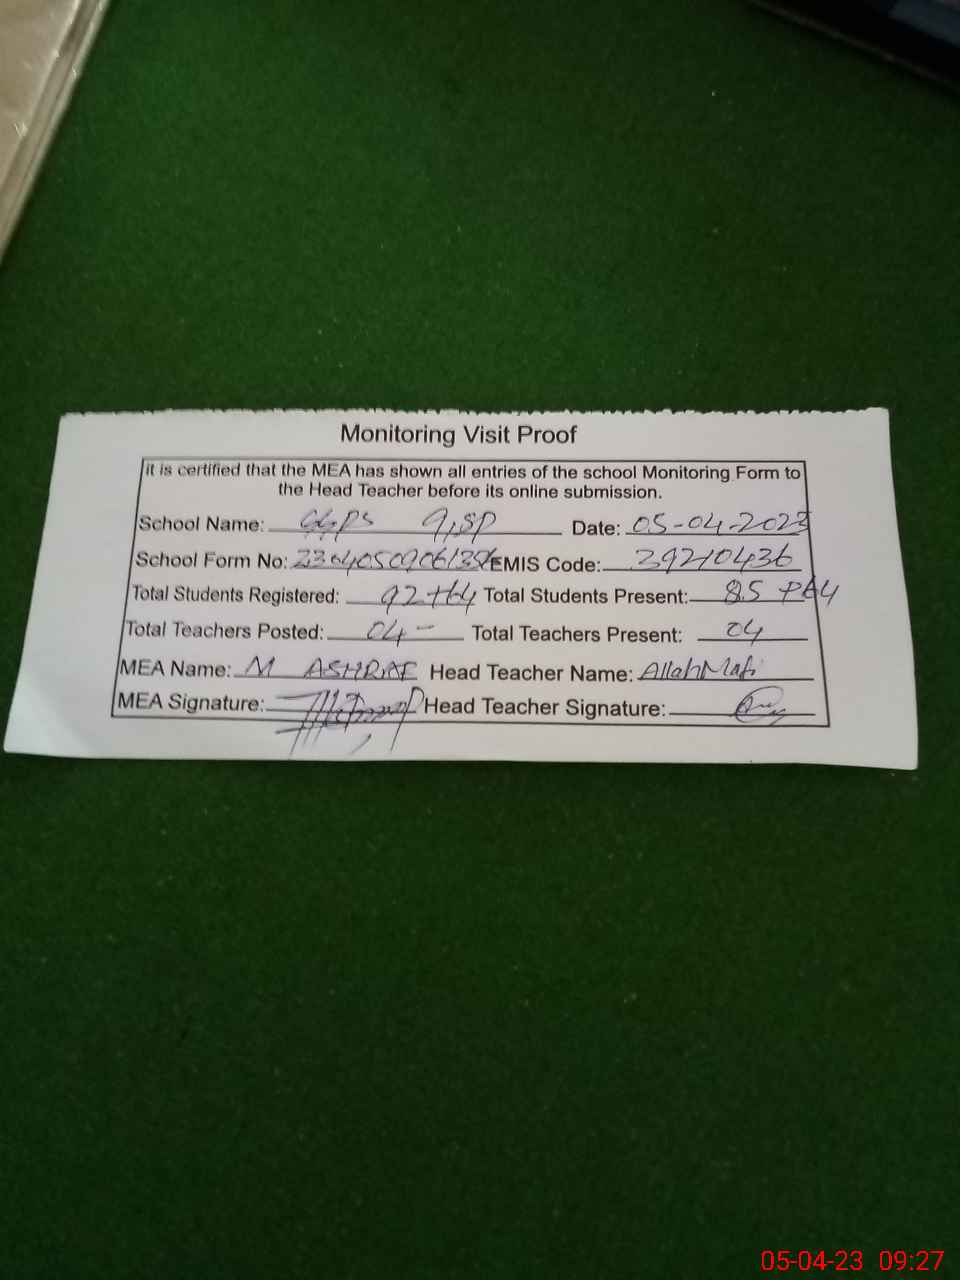 Monitoring Visit Proof
it is certified that the MEA has shown all entries of the school Monitoring Form to
the Head Teacher before its online submission.
School Name: GGPS 9,SP Date: 05-04-2023
School Form No: EMIS Code: 39210436
Total Students Registered: 92+64 Total Students Present: 85 +64
Total Teachers Posted: 04 - Total Teachers Present: 04
MEA Name: M ASHRAF Head Teacher Name: Allah
MEA Signature: Head Teacher Signature:
05-04-23 09:27